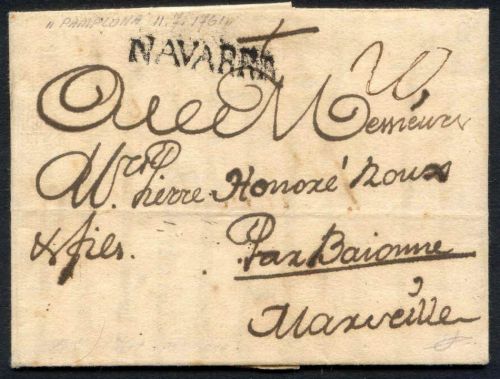 "PAMPLONA 11.7.1761"
NAVARRA
20
A Messieurs
Mrs Pierre Honoré Roux
& fils.
Par Baionne
Marseille